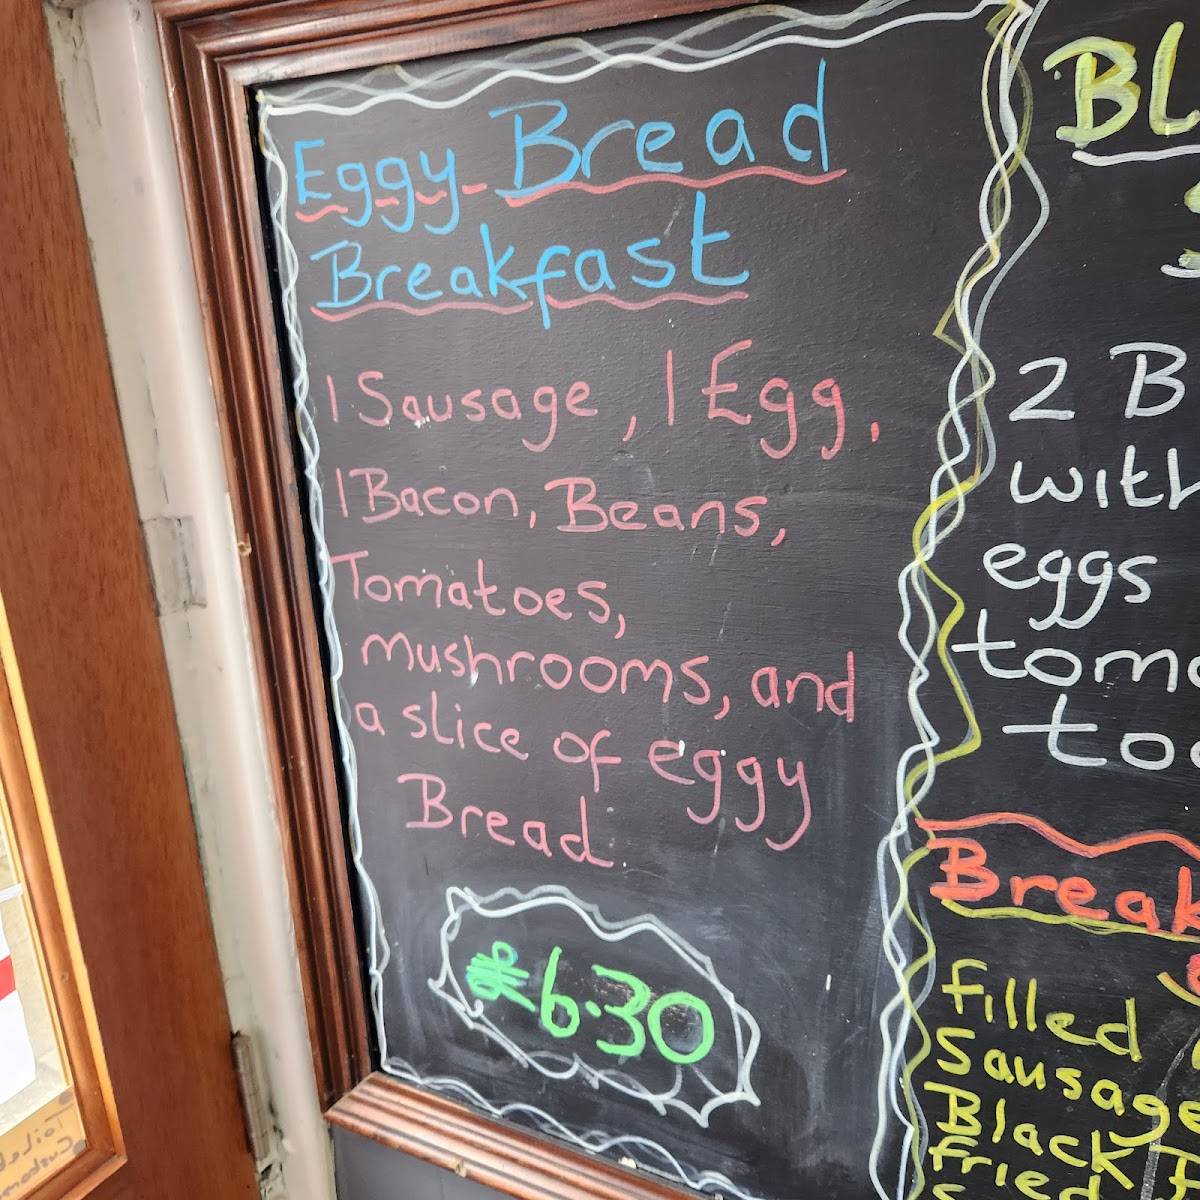 Eggy Bread
Breakfast
1 Sausage, 1 Egg,
1 Bacon, Beans,
Tomatoes,
mushrooms, and
a slice of eggy
Bread.
£6.30
BL
2 B
with
eggs
toma
toa
Break
Filled
Sausage
Black
Fried